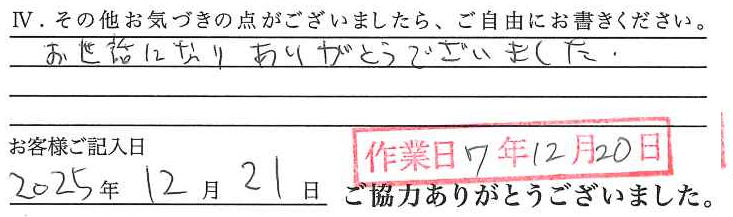 Ⅳ．その他お気づきの点がございましたら、ご自由にお書きください。
お世話になり ありがとうございました.
お客様ご記入日
作業日 7年12月20日
2025年 12月 21日
ご協力ありがとうございました。